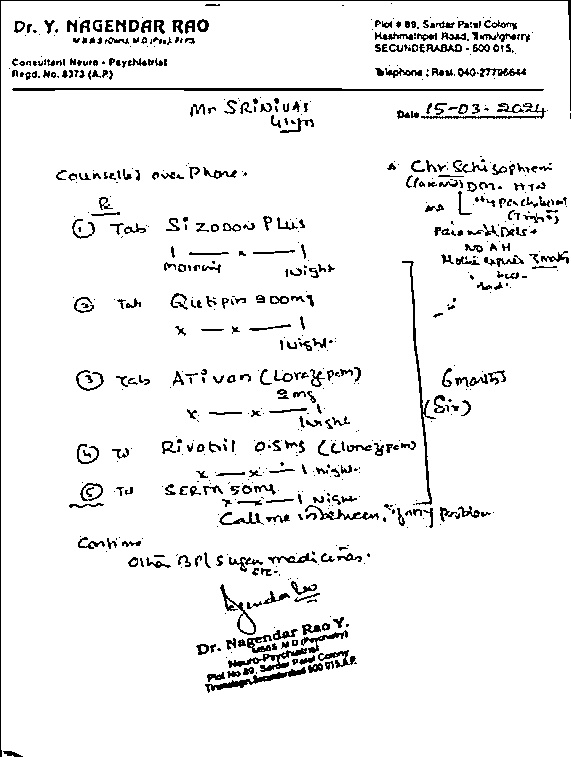 Dr. Y. NAGENDAR RAO
M.B.B.S (Osm), M.D (Psy)
Consultant Neuro - Psychiatrist
Regd. No. 8373 (A.P.)
Plot # 89, Sardar Patel Colony
Hashmathpet Road, Trimulgherry
SECUNDERABAD - 500 015.
Telephone : Resi. 040-27796644
Mr SRINIVAS
41 yrs
Date 15-03-2024
Counselled over Phone.
Chr. Schizophreni
(Paranoid) DM. HTN
and Hypercholestrol
(Triglys)
Paranoid Dels +
NO AH
Mother expired 3 months
back
R
① Tab SIZODON PLUS
1 — x — 1
morning night
② Tab Qutipin 200mg
x — x — 1
night
③ Tab ATivan (Lorazepam)
2mg
x — x — 1
night
④ Rivotril 0.5mg (Clonazepam)
x — x — 1 night
⑤ SERTA 50mg
x — x — 1 night
6 months
(Six)
Call me inbetween, if any problem
Continue
Other BP/Sugar medicines.
etc.
Dr. Nagendar Rao Y.
MBBS M D (Psychiatry)
Neuro-Psychiatrist
Plot No 89, Sardar Patel Colony
Secunderabad 500 015. A.P.